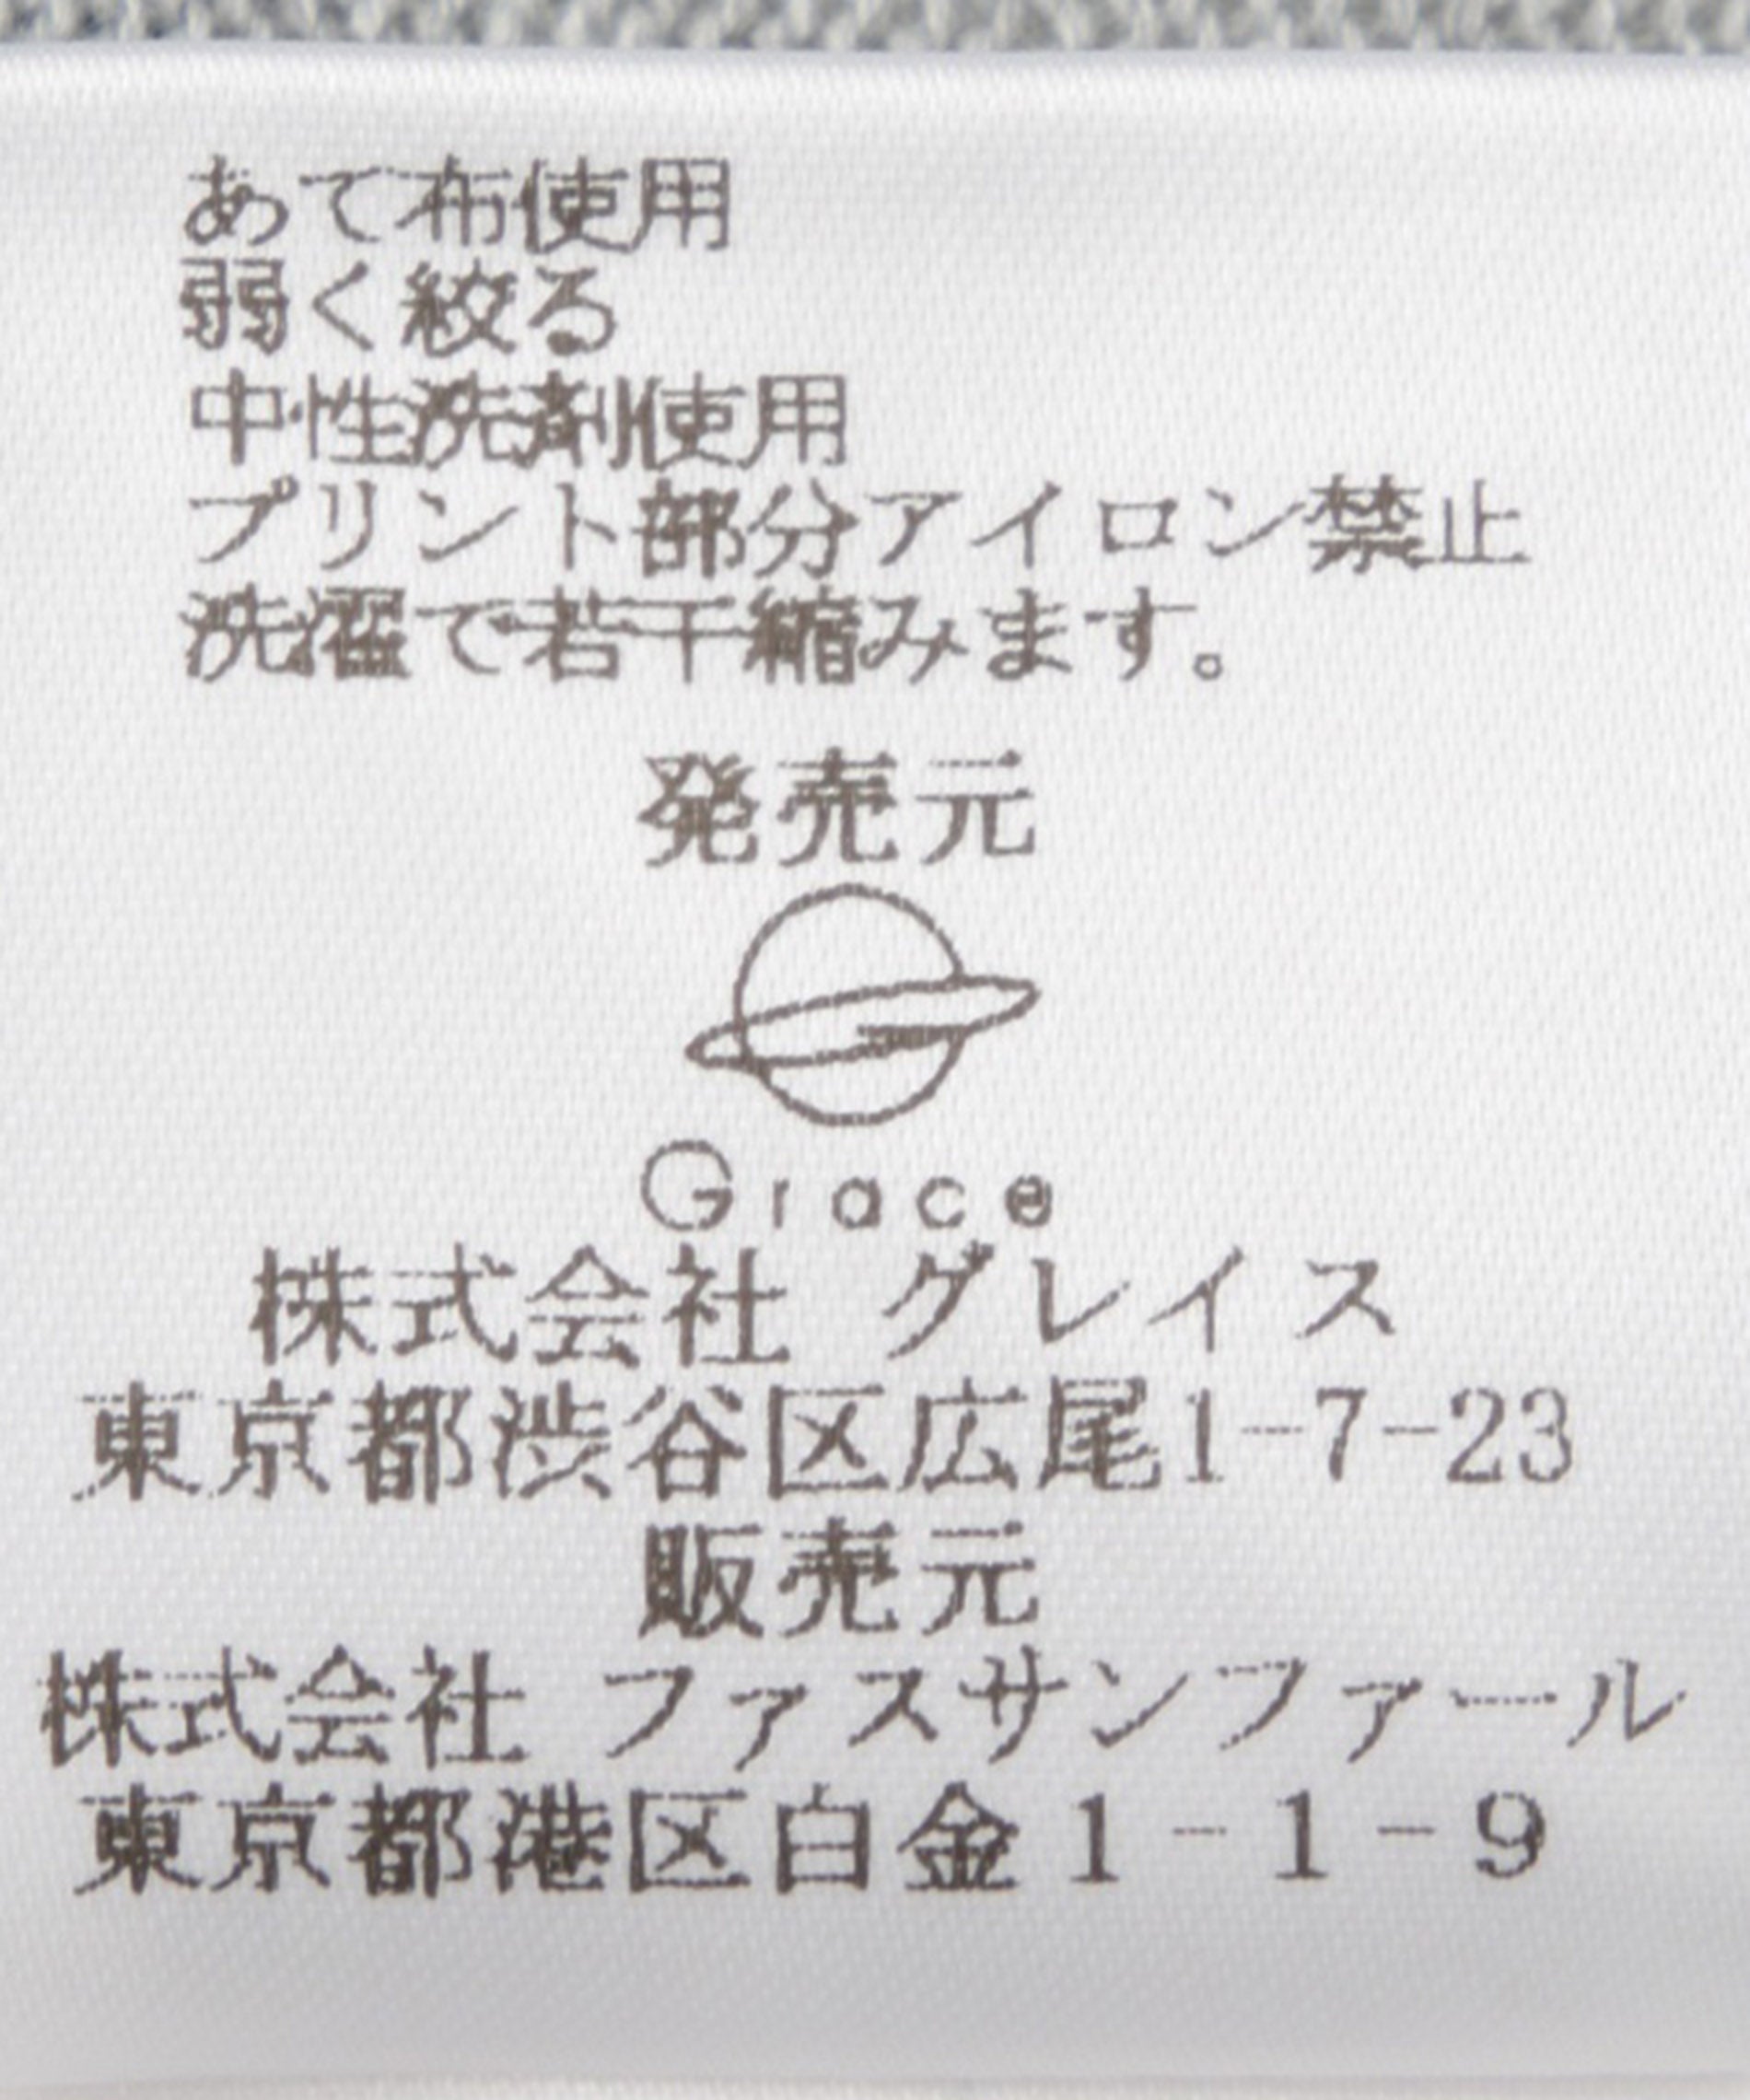 あて布使用
弱く絞る
中性洗剤使用
プリント部分アイロン禁止
洗濯で若干縮みます。
発売元
Grace
株式会社 グレイス
東京都渋谷区広尾1-7-23
販売元
株式会社 ファスサンファール
東京都港区白金1-1-9